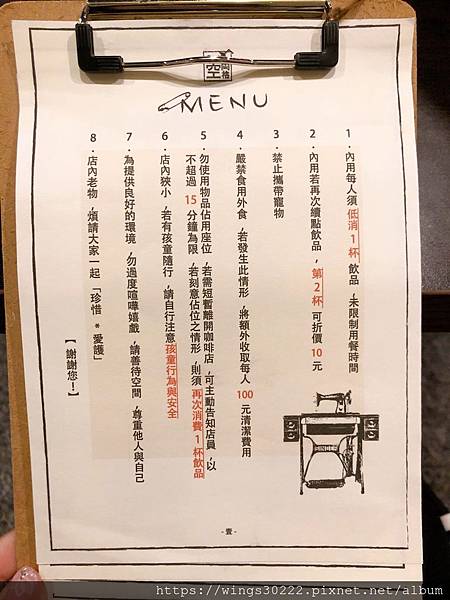 空格
MENU
1・內用每人須 低消1杯 飲品，未限制用餐時間
2・內用若再次續點飲品，第2杯 可折價 10 元
3・禁止攜帶寵物
4・嚴禁食用外食，若發生此情形，將額外收取每人 100 元清潔費用
5・勿使用物品佔用座位，若需短暫離開咖啡店，可主動告知店員，以
不超過 15 分鐘為限，若刻意佔位之情形，則須 再次消費1杯飲品
6・店內狹小，若有孩童隨行，請自行注意孩童行為與安全
7・為提供良好的環境，勿過度喧嘩嬉戲，請善待空間，尊重他人與自己
8・店內老物，煩請大家一起「珍惜 * 愛護」
【 謝謝您！】
SINGER
-壹-
https://wings30222.pixnet.net/album